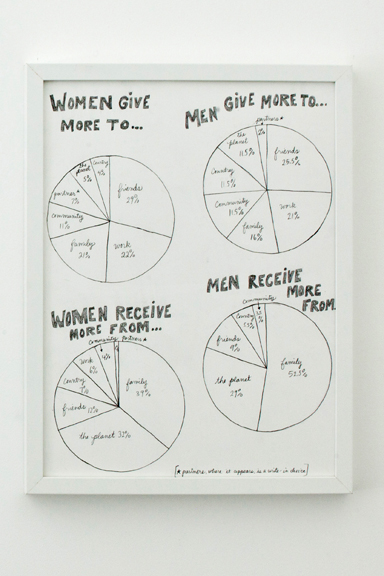 WOMEN GIVE
MORE TO...
country
4%
the
planet
5%
partner*
7%
community
11%
family
21%
work
22%
friends
29%
MEN GIVE MORE TO...
partners*
2%
the
planet
11.5%
country
11.5%
community
11.5%
family
16%
work
21%
friends
26.5%
WOMEN RECEIVE
MORE FROM...
community
partners*
4%
work
6%
country
friends 12%
the planet 32%
family
39%
MEN RECEIVE
MORE
FROM
community
country
friends
9%
the planet
29%
family
52.5%
[* partners, where it appears, is a write-in choice]